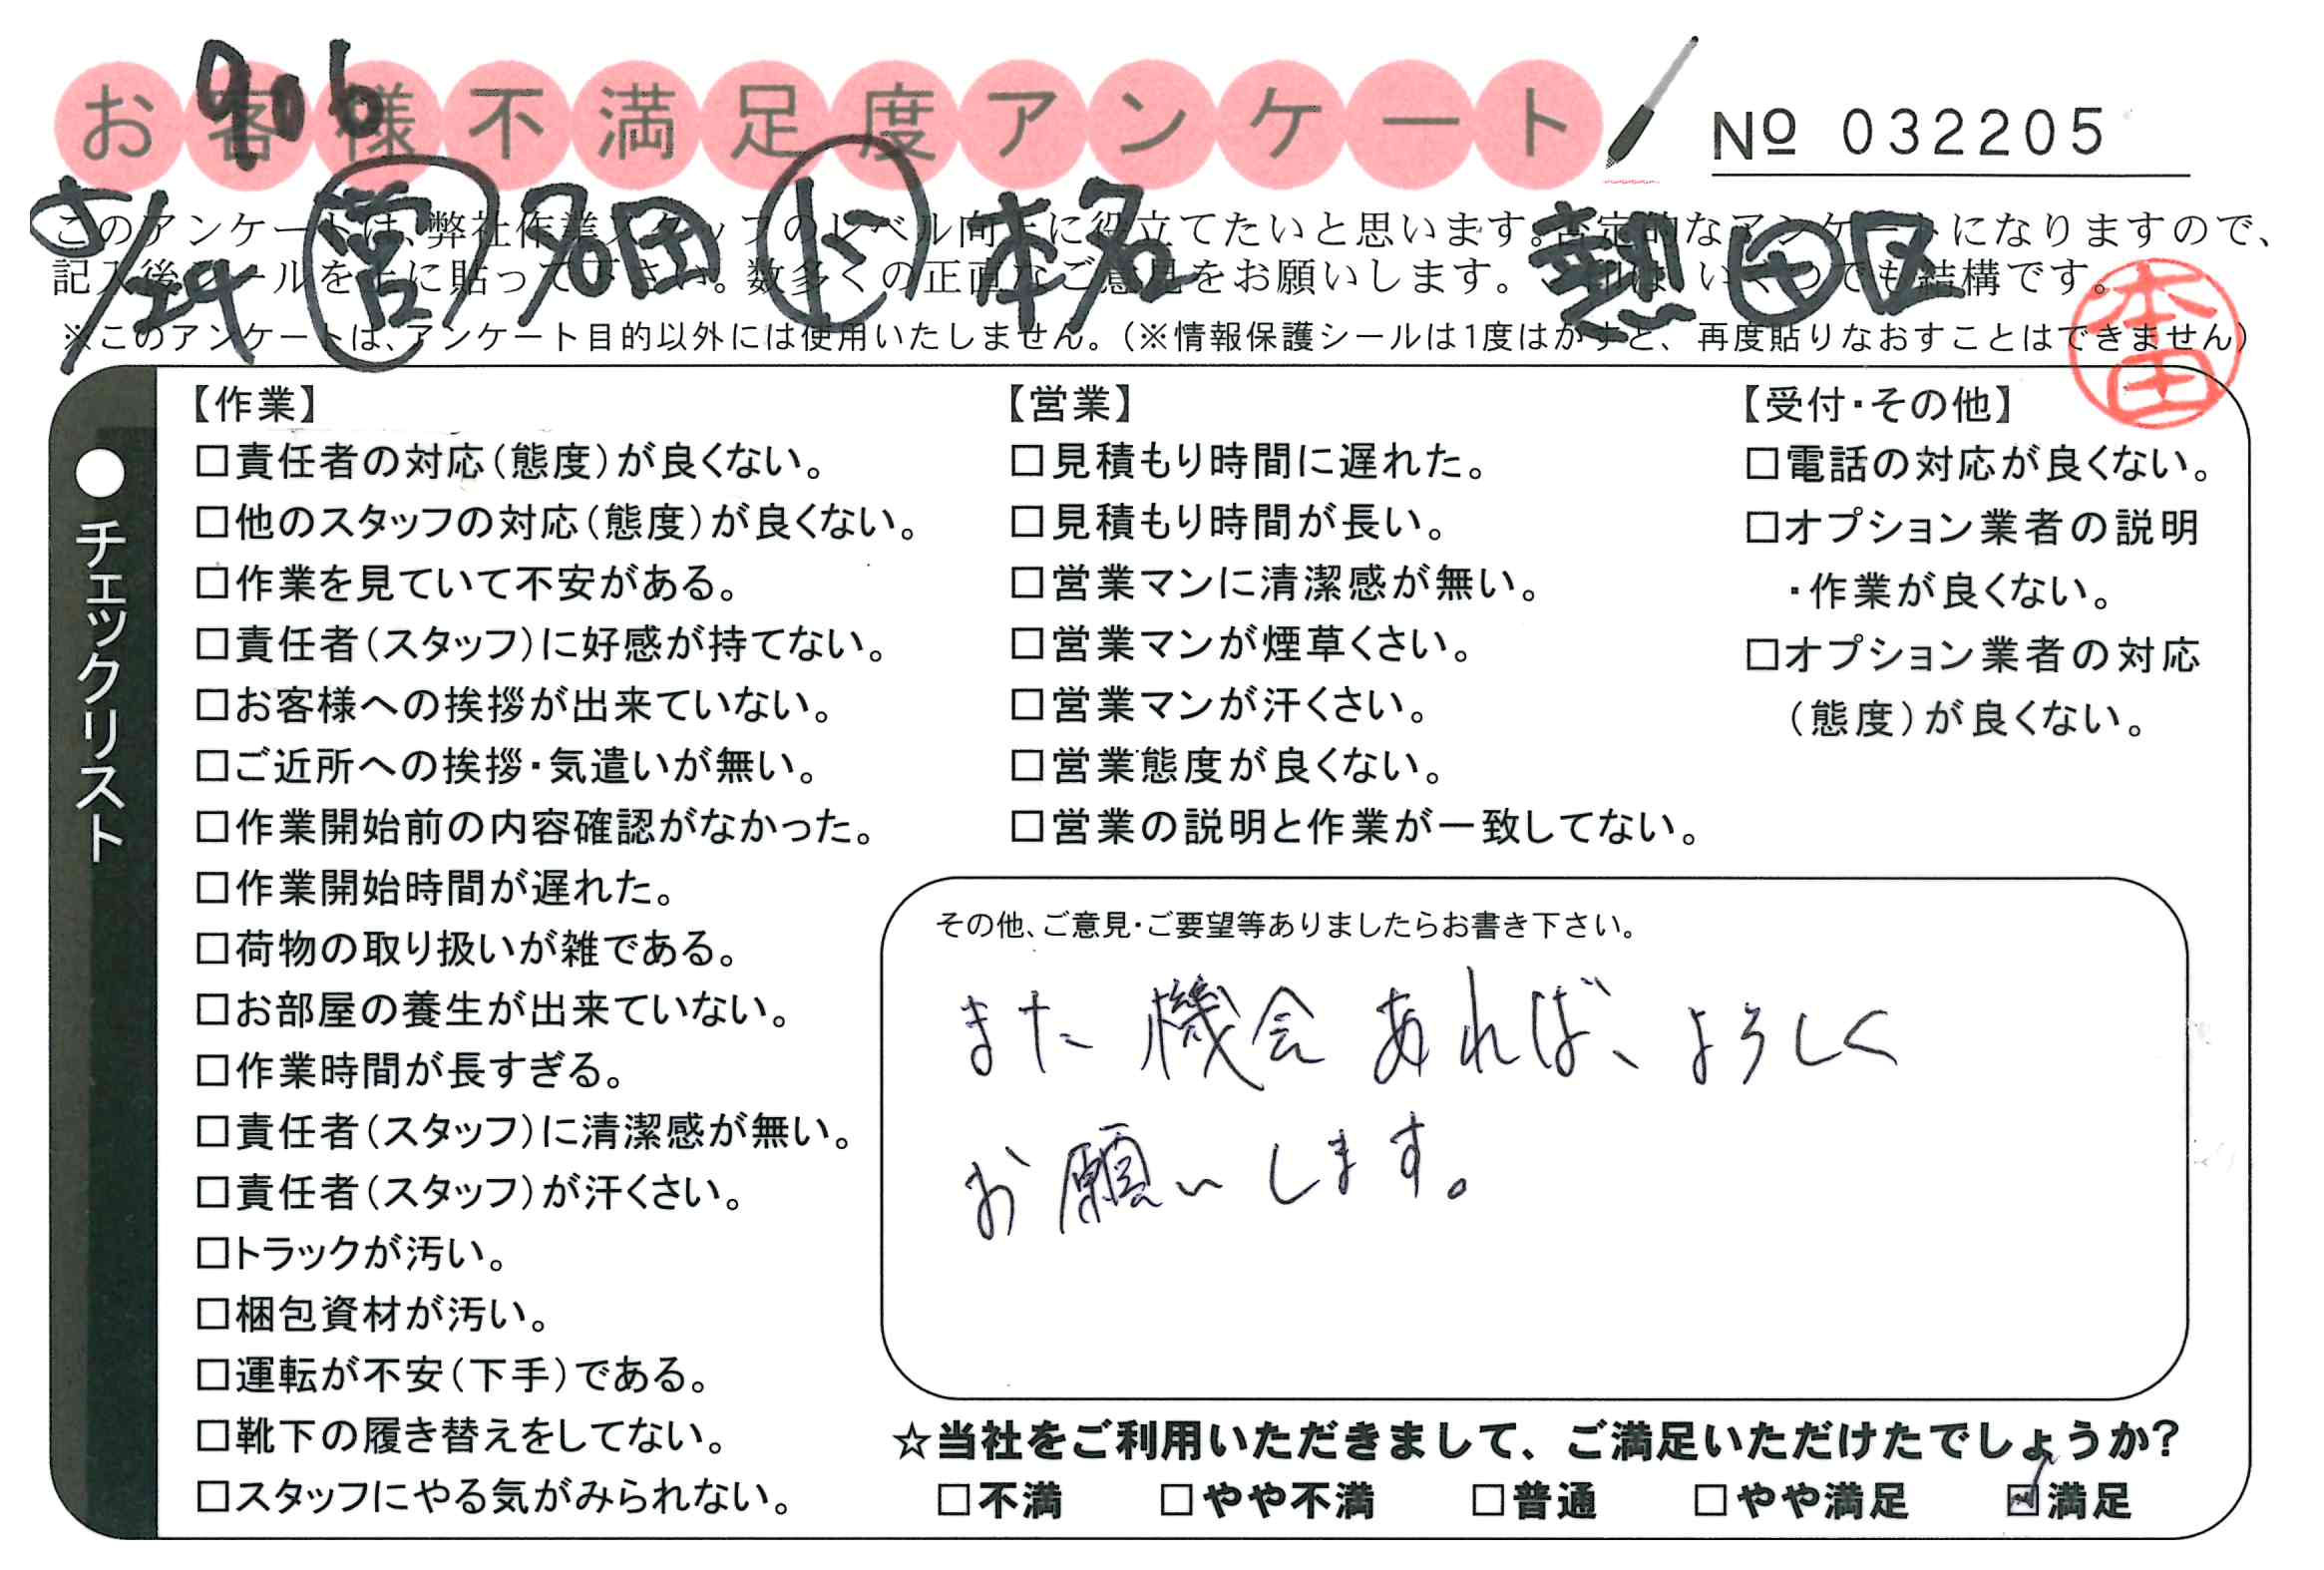 お客様不満足度アンケート
906
No 032205
5/29 営 名田 ト 本名 熱田区
このアンケートは、弊社作業スタッフのレベル向上に役立てたいと思います。否定的なアンケートになりますので、
記入後シールを上に貼って下さい。数多くの正直なご意見をお願いします。シールはいくつでも結構です。
※このアンケートは、アンケート目的以外には使用いたしません。(※情報保護シールは1度はがすと、再度貼りなおすことはできません)
本田
●チェックリスト
【作業】
□責任者の対応(態度)が良くない。
□他のスタッフの対応(態度)が良くない。
□作業を見ていて不安がある。
□責任者(スタッフ)に好感が持てない。
□お客様への挨拶が出来ていない。
□ご近所への挨拶・気遣いが無い。
□作業開始前の内容確認がなかった。
□作業開始時間が遅れた。
□荷物の取り扱いが雑である。
□お部屋の養生が出来ていない。
□作業時間が長すぎる。
□責任者(スタッフ)に清潔感が無い。
□責任者(スタッフ)が汗くさい。
□トラックが汚い。
□梱包資材が汚い。
□運転が不安(下手)である。
□靴下の履き替えをしてない。
□スタッフにやる気がみられない。
【営業】
□見積もり時間に遅れた。
□見積もり時間が長い。
□営業マンに清潔感が無い。
□営業マンが煙草くさい。
□営業マンが汗くさい。
□営業態度が良くない。
□営業の説明と作業が一致してない。
【受付・その他】
□電話の対応が良くない。
□オプション業者の説明
・作業が良くない。
□オプション業者の対応
(態度)が良くない。
その他、ご意見・ご要望等ありましたらお書き下さい。
また機会あれば、よろしく
お願いします。
☆当社をご利用いただきまして、ご満足いただけたでしょうか?
□不満 □やや不満 □普通 □やや満足 ☑満足